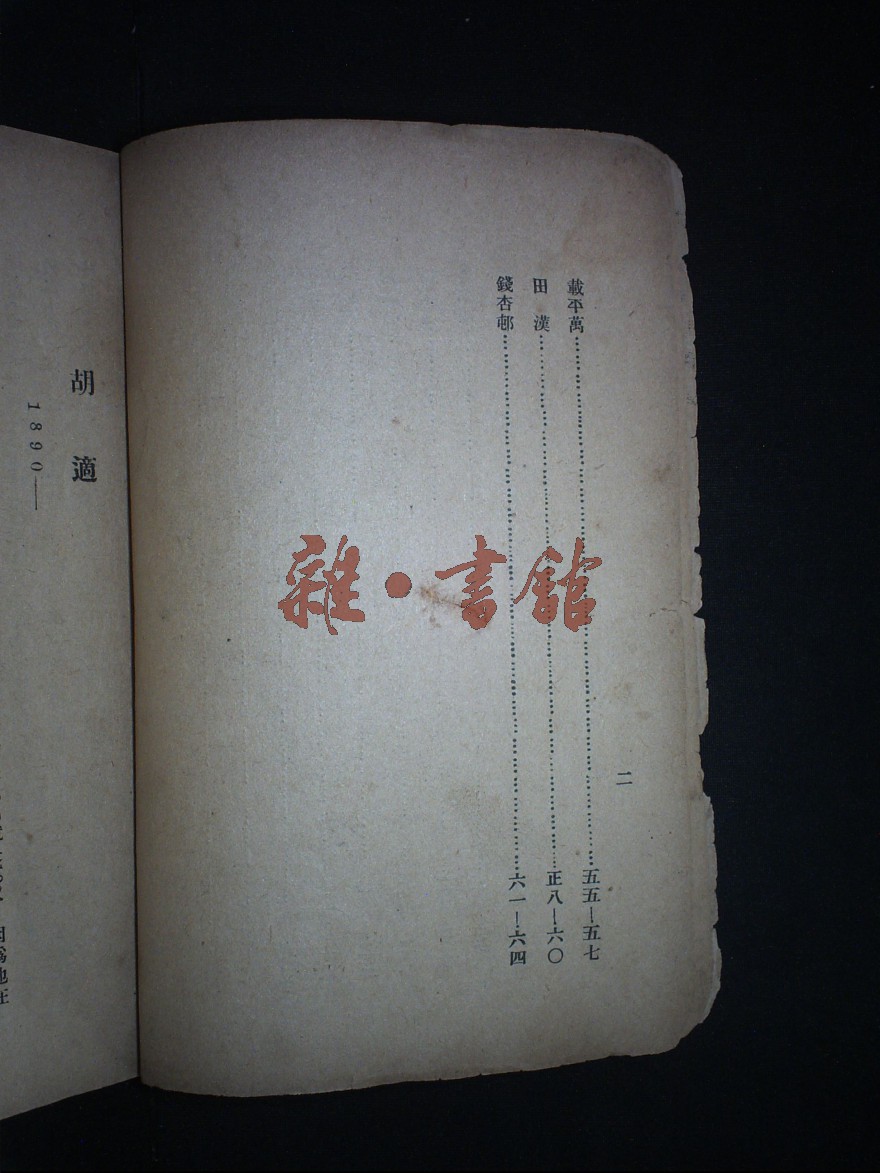 二
載平萬……五五—五七
田漢……正八—六〇
錢杏邨……六一—六四
胡適
1890—
因爲他在
雜·書館